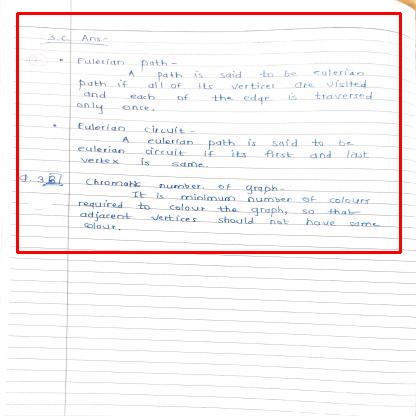 3.C. Ans-
• Eulerian path -
A path is said to be eulerian
path if all of its vertices are visited
and each of the edge is traversed
only once.
• Eulerian circuit -
A eulerian path is said to be
eulerian circuit if its first and last
vertex is same.
Chromatic number of graph-
It is minimum number of colours
required to colour the graph, so that
adjacent vertices should not have same
colour.